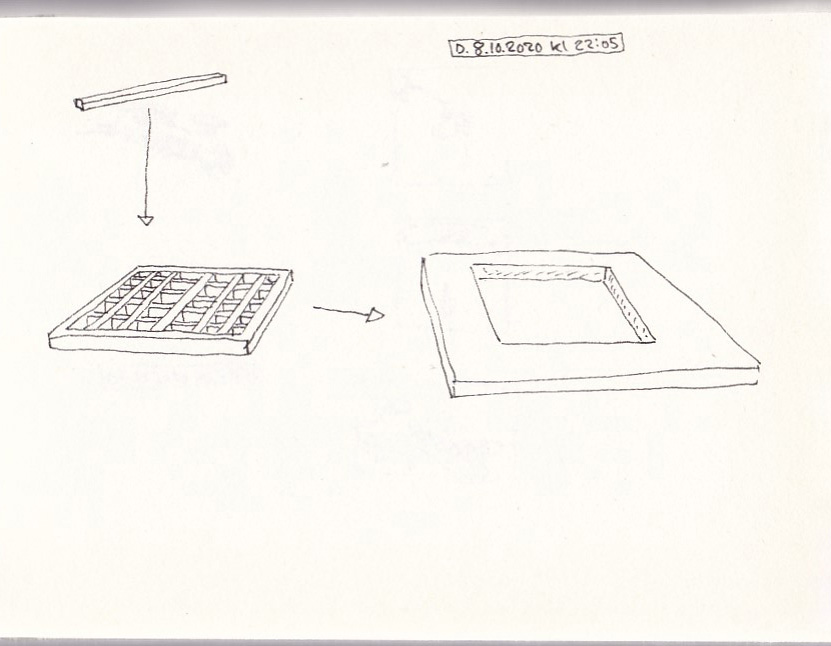 D. 8.10.2020 kl 22:05